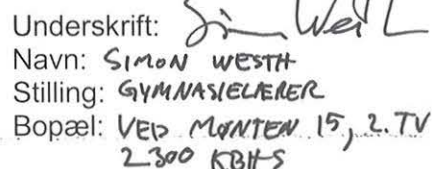 Underskrift:
Navn: SIMON WESTH
Stilling: GYMNASIELÆRER
Bopæl: VED MØNTEN 15, 2. TV
2300 KBHS